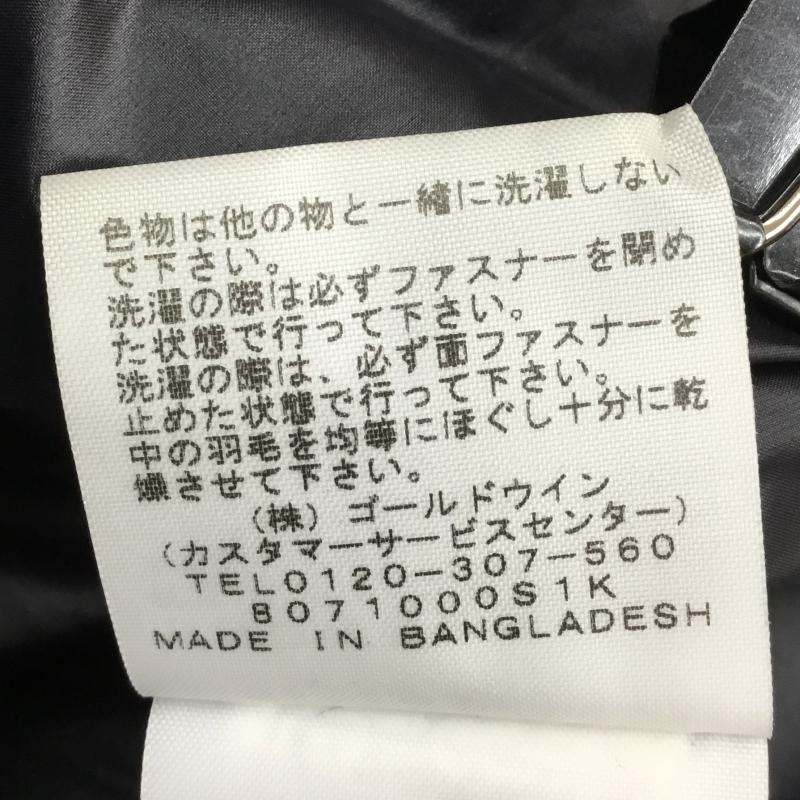 色物は他の物と一緒に洗濯しない
で下さい。
洗濯の際は必ずファスナーを閉め
た状態で行って下さい。
洗濯の際は、必ず面ファスナーを
止めた状態で行って下さい。
中の羽毛を均等にほぐし十分に乾
燥させて下さい。
(株) ゴールドウイン
(カスタマーサービスセンター)
TEL0120-307-560
B071000S1K
MADE IN BANGLADESH